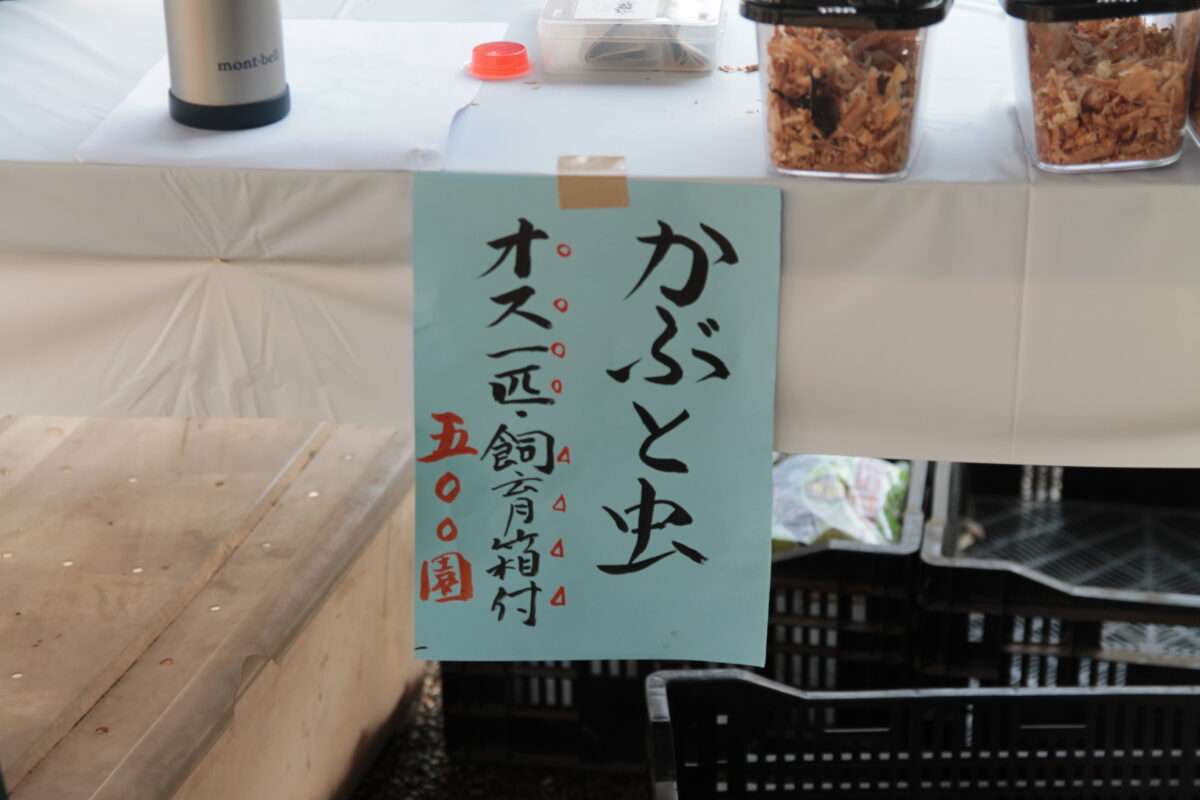 mont-bell
かぶと虫
オス一匹・飼育箱付
五〇〇園